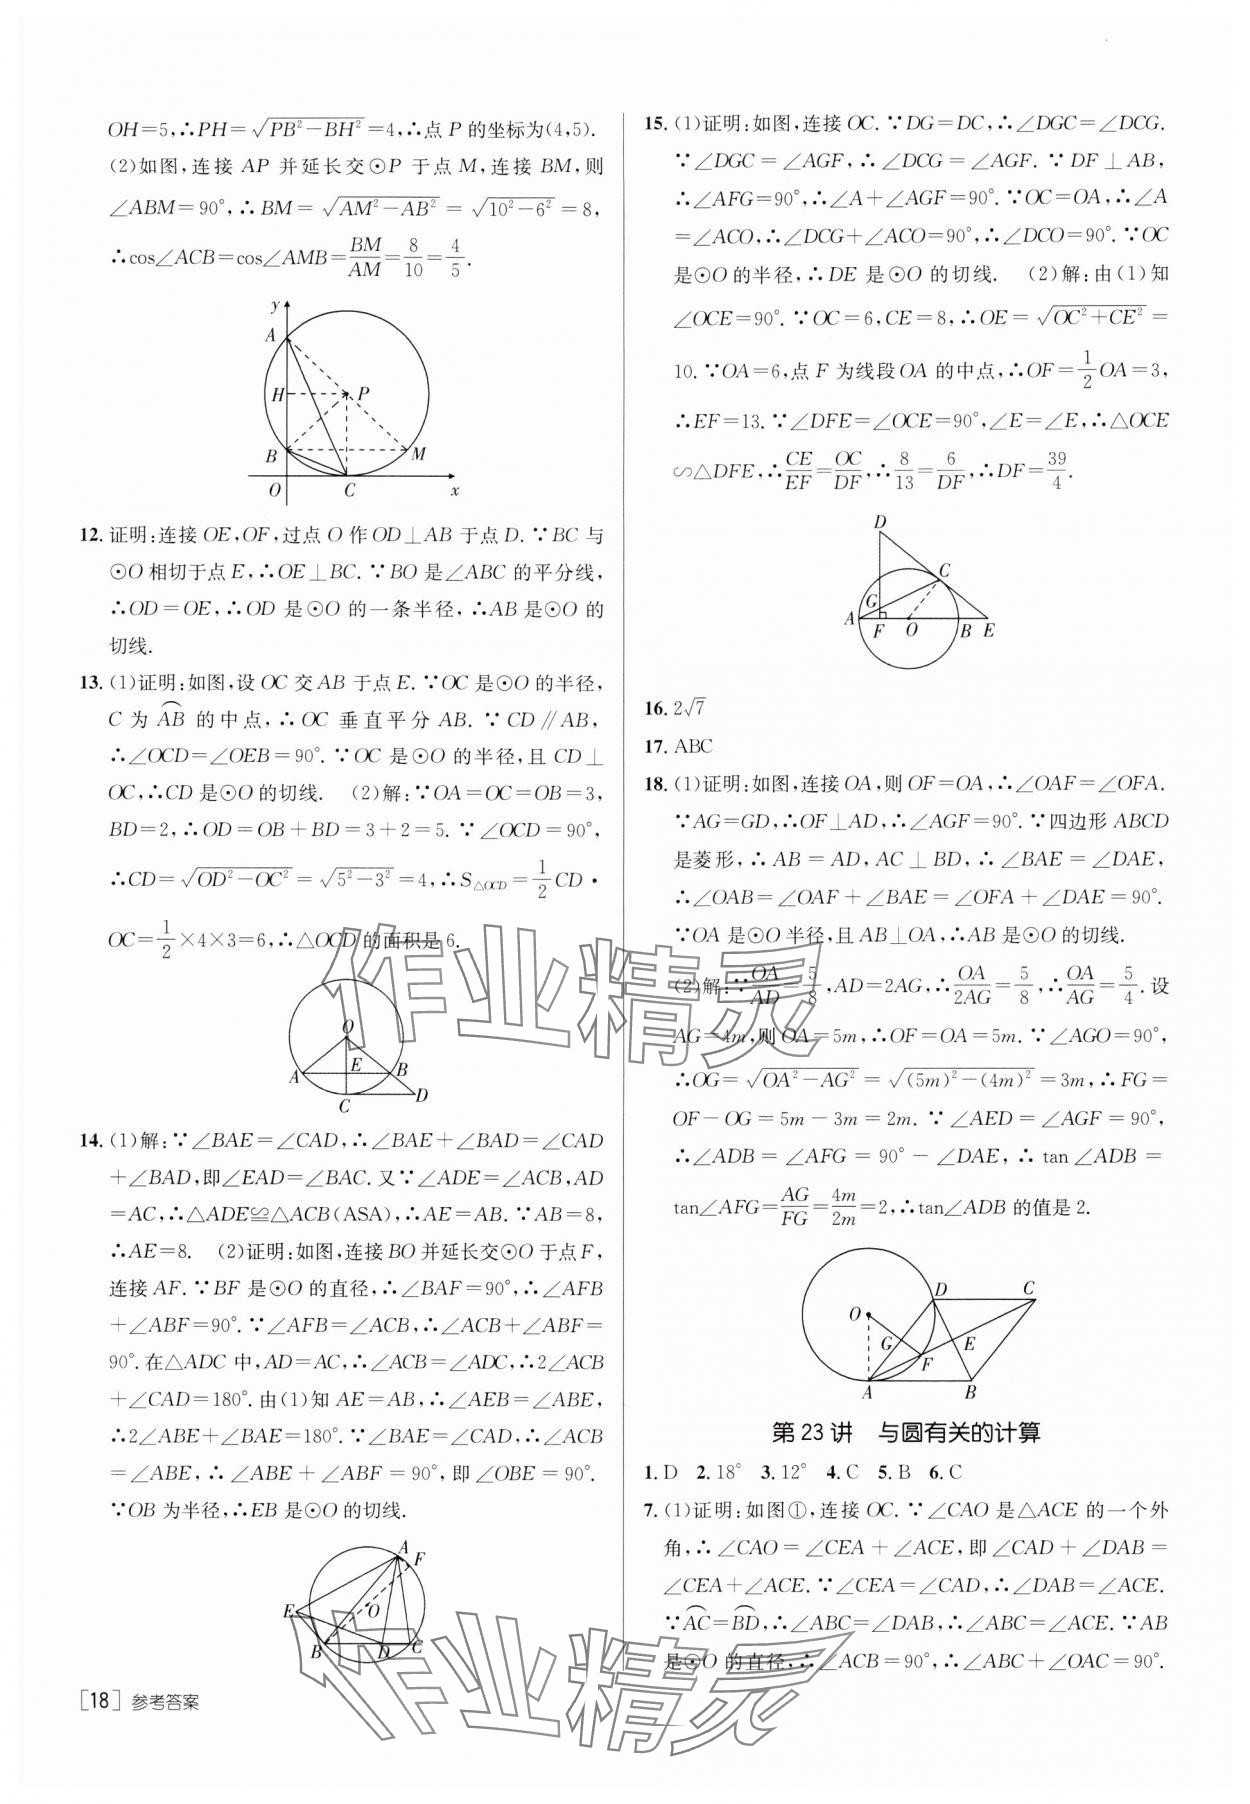 OH=5,∴PH=√(PB²-BH²)=4,∴点 P 的坐标为(4,5).
(2)如图,连接 AP 并延长交⊙P 于点 M,连接 BM,则
∠ABM=90°,∴BM=√(AM²-AB²)=√(10²-6²)=8,
∴cos∠ACB=cos∠AMB=BM/AM=8/10=4/5.
y
A
H
P
B
M
O
C
x
12. 证明:连接 OE,OF,过点 O 作 OD⊥AB 于点 D.∵BC 与
⊙O 相切于点 E,∴OE⊥BC.∵BO 是∠ABC 的平分线,
∴OD=OE,∴OD 是⊙O 的一条半径,∴AB 是⊙O 的
切线.
13. (1)证明:如图,设 OC 交 AB 于点 E.∵OC 是⊙O 的半径,
C 为 AB⌒ 的中点,∴OC 垂直平分 AB.∵CD∥AB,
∴∠OCD=∠OEB=90°.∵OC 是⊙O 的半径,且 CD⊥
OC,∴CD 是⊙O 的切线. (2)解:∵OA=OC=OB=3,
BD=2,∴OD=OB+BD=3+2=5.∵∠OCD=90°,
∴CD=√(OD²-OC²)=√(5²-3²)=4,∴S△OCD=1/2 CD·
OC=1/2×4×3=6,∴△OCD 的面积是 6.
O
E
A
B
C
D
14. (1)解:∵∠BAE=∠CAD,∴∠BAE+∠BAD=∠CAD
+∠BAD,即∠EAD=∠BAC.又∵∠ADE=∠ACB,AD
=AC,∴△ADE≌△ACB(ASA),∴AE=AB.∵AB=8,
∴AE=8. (2)证明:如图,连接 BO 并延长交⊙O 于点 F,
连接 AF.∵BF 是⊙O 的直径,∴∠BAF=90°,∴∠AFB
+∠ABF=90°.∵∠AFB=∠ACB,∴∠ACB+∠ABF=
90°.在△ADC 中,AD=AC,∴∠ACB=∠ADC,∴2∠ACB
+∠CAD=180°.由(1)知 AE=AB,∴∠AEB=∠ABE,
∴2∠ABE+∠BAE=180°.∵∠BAE=∠CAD,∴∠ACB
=∠ABE,∴∠ABE+∠ABF=90°,即∠OBE=90°.
∵OB 为半径,∴EB 是⊙O 的切线.
A
F
E
O
B
D
C
[18] 参考答案
15. (1)证明:如图,连接 OC.∵DG=DC,∴∠DGC=∠DCG.
∵∠DGC=∠AGF,∴∠DCG=∠AGF.∵DF⊥AB,
∴∠AFG=90°,∴∠A+∠AGF=90°.∵OC=OA,∴∠A
=∠ACO,∴∠DCG+∠ACO=90°,∴∠DCO=90°.∵OC
是⊙O 的半径,∴DE 是⊙O 的切线. (2)解:由(1)知
∠OCE=90°.∵OC=6,CE=8,∴OE=√(OC²+CE²)=
10.∵OA=6,点 F 为线段 OA 的中点,∴OF=1/2 OA=3,
∴EF=13.∵∠DFE=∠OCE=90°,∠E=∠E,∴△OCE
∽△DFE,∴CE/EF=OC/DF,∴8/13=6/DF,∴DF=39/4.
D
C
G
A
F
O
B
E
16. 2√7
17. ABC
18. (1)证明:如图,连接 OA,则 OF=OA,∴∠OAF=∠OFA.
∵AG=GD,∴OF⊥AD,∴∠AGF=90°.∵四边形 ABCD
是菱形,∴AB=AD,AC⊥BD,∴∠BAE=∠DAE,
∴∠OAB=∠OAF+∠BAE=∠OFA+∠DAE=90°.
∵OA 是⊙O 半径,且 AB⊥OA,∴AB 是⊙O 的切线.
(2)解:∵OA/AD=5/8,AD=2AG,∴OA/2AG=5/8,∴OA/AG=5/4.设
AG=4m,则 OA=5m,∴OF=OA=5m.∵∠AGO=90°,
∴OG=√(OA²-AG²)=√((5m)²-(4m)²)=3m,∴FG=
OF-OG=5m-3m=2m.∵∠AED=∠AGF=90°,
∴∠ADB=∠AFG=90°-∠DAE,∴tan∠ADB=
tan∠AFG=AG/FG=4m/2m=2,∴tan∠ADB 的值是 2.
D
C
O
G
E
F
A
B
第 23 讲 与圆有关的计算
1. D 2. 18° 3. 12° 4. C 5. B 6. C
7. (1)证明:如图①,连接 OC.∵∠CAO 是△ACE 的一个外
角,∴∠CAO=∠CEA+∠ACE,即∠CAD+∠DAB=
∠CEA+∠ACE.∵∠CEA=∠CAD,∴∠DAB=∠ACE.
∵AC⌒=BD⌒,∴∠ABC=∠DAB,∴∠ABC=∠ACE.∵AB
是⊙O 的直径,∴∠ACB=90°,∴∠ABC+∠OAC=90°.
作业精灵
作业精灵